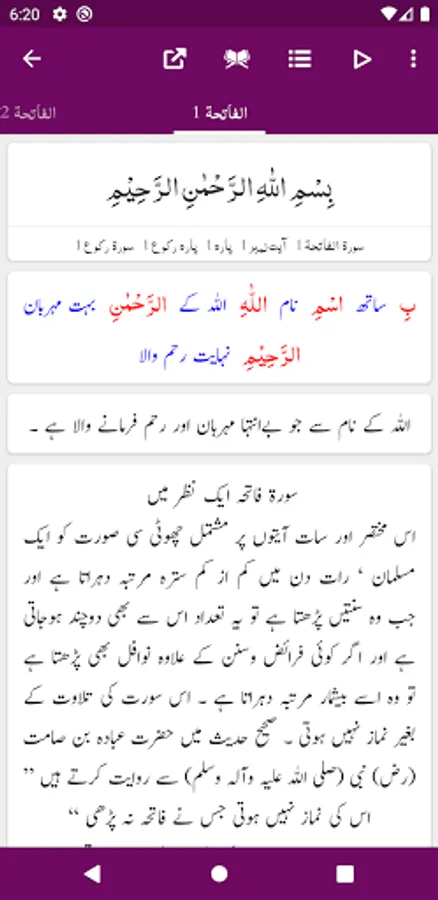 6:20
الفاتحة 1
الفاتحة 2
بِسْمِ اللّٰهِ الرَّحْمٰنِ الرَّحِيْمِ
سورة الفاتحة 1 آیت نمبر 1 پارہ 1 پارہ رکوع 1 سورة رکوع 1
بِ ساتھ اسْمِ نام اللّٰهِ اللہ کے الرَّحْمٰنِ بہت مہربان
الرَّحِيْمِ نہایت رحم والا
اللہ کے نام سے جو بےانتہا مہربان اور رحم فرمانے والا ہے ۔
سورة فاتحہ ایک نظر میں
اس مختصر اور سات آیتوں پر مشتمل چھوٹی سی صورت کو ایک
مسلمان ‘ رات دن میں کم از کم سترہ مرتبہ دہراتا ہے اور
جب وہ سنتیں پڑھتا ہے تو یہ تعداد اس سے بھی دوچند ہوجاتی
ہے اور اگر کوئی فرائض وسنن کے علاوہ نوافل بھی پڑھتا ہے
تو وہ اسے بیشمار مرتبہ دہراتا ہے ۔ اس سورت کی تلاوت کے
بغیر نماز نہیں ہوتی ۔ صحیح حدیث میں حضرت عبادہ بن صامت
(رض) نبی (صلی اللہ علیہ وآلہ وسلم) سے روایت کرتے ہیں ”
اس کی نماز نہیں ہوتی جس نے فاتحہ نہ پڑھی “